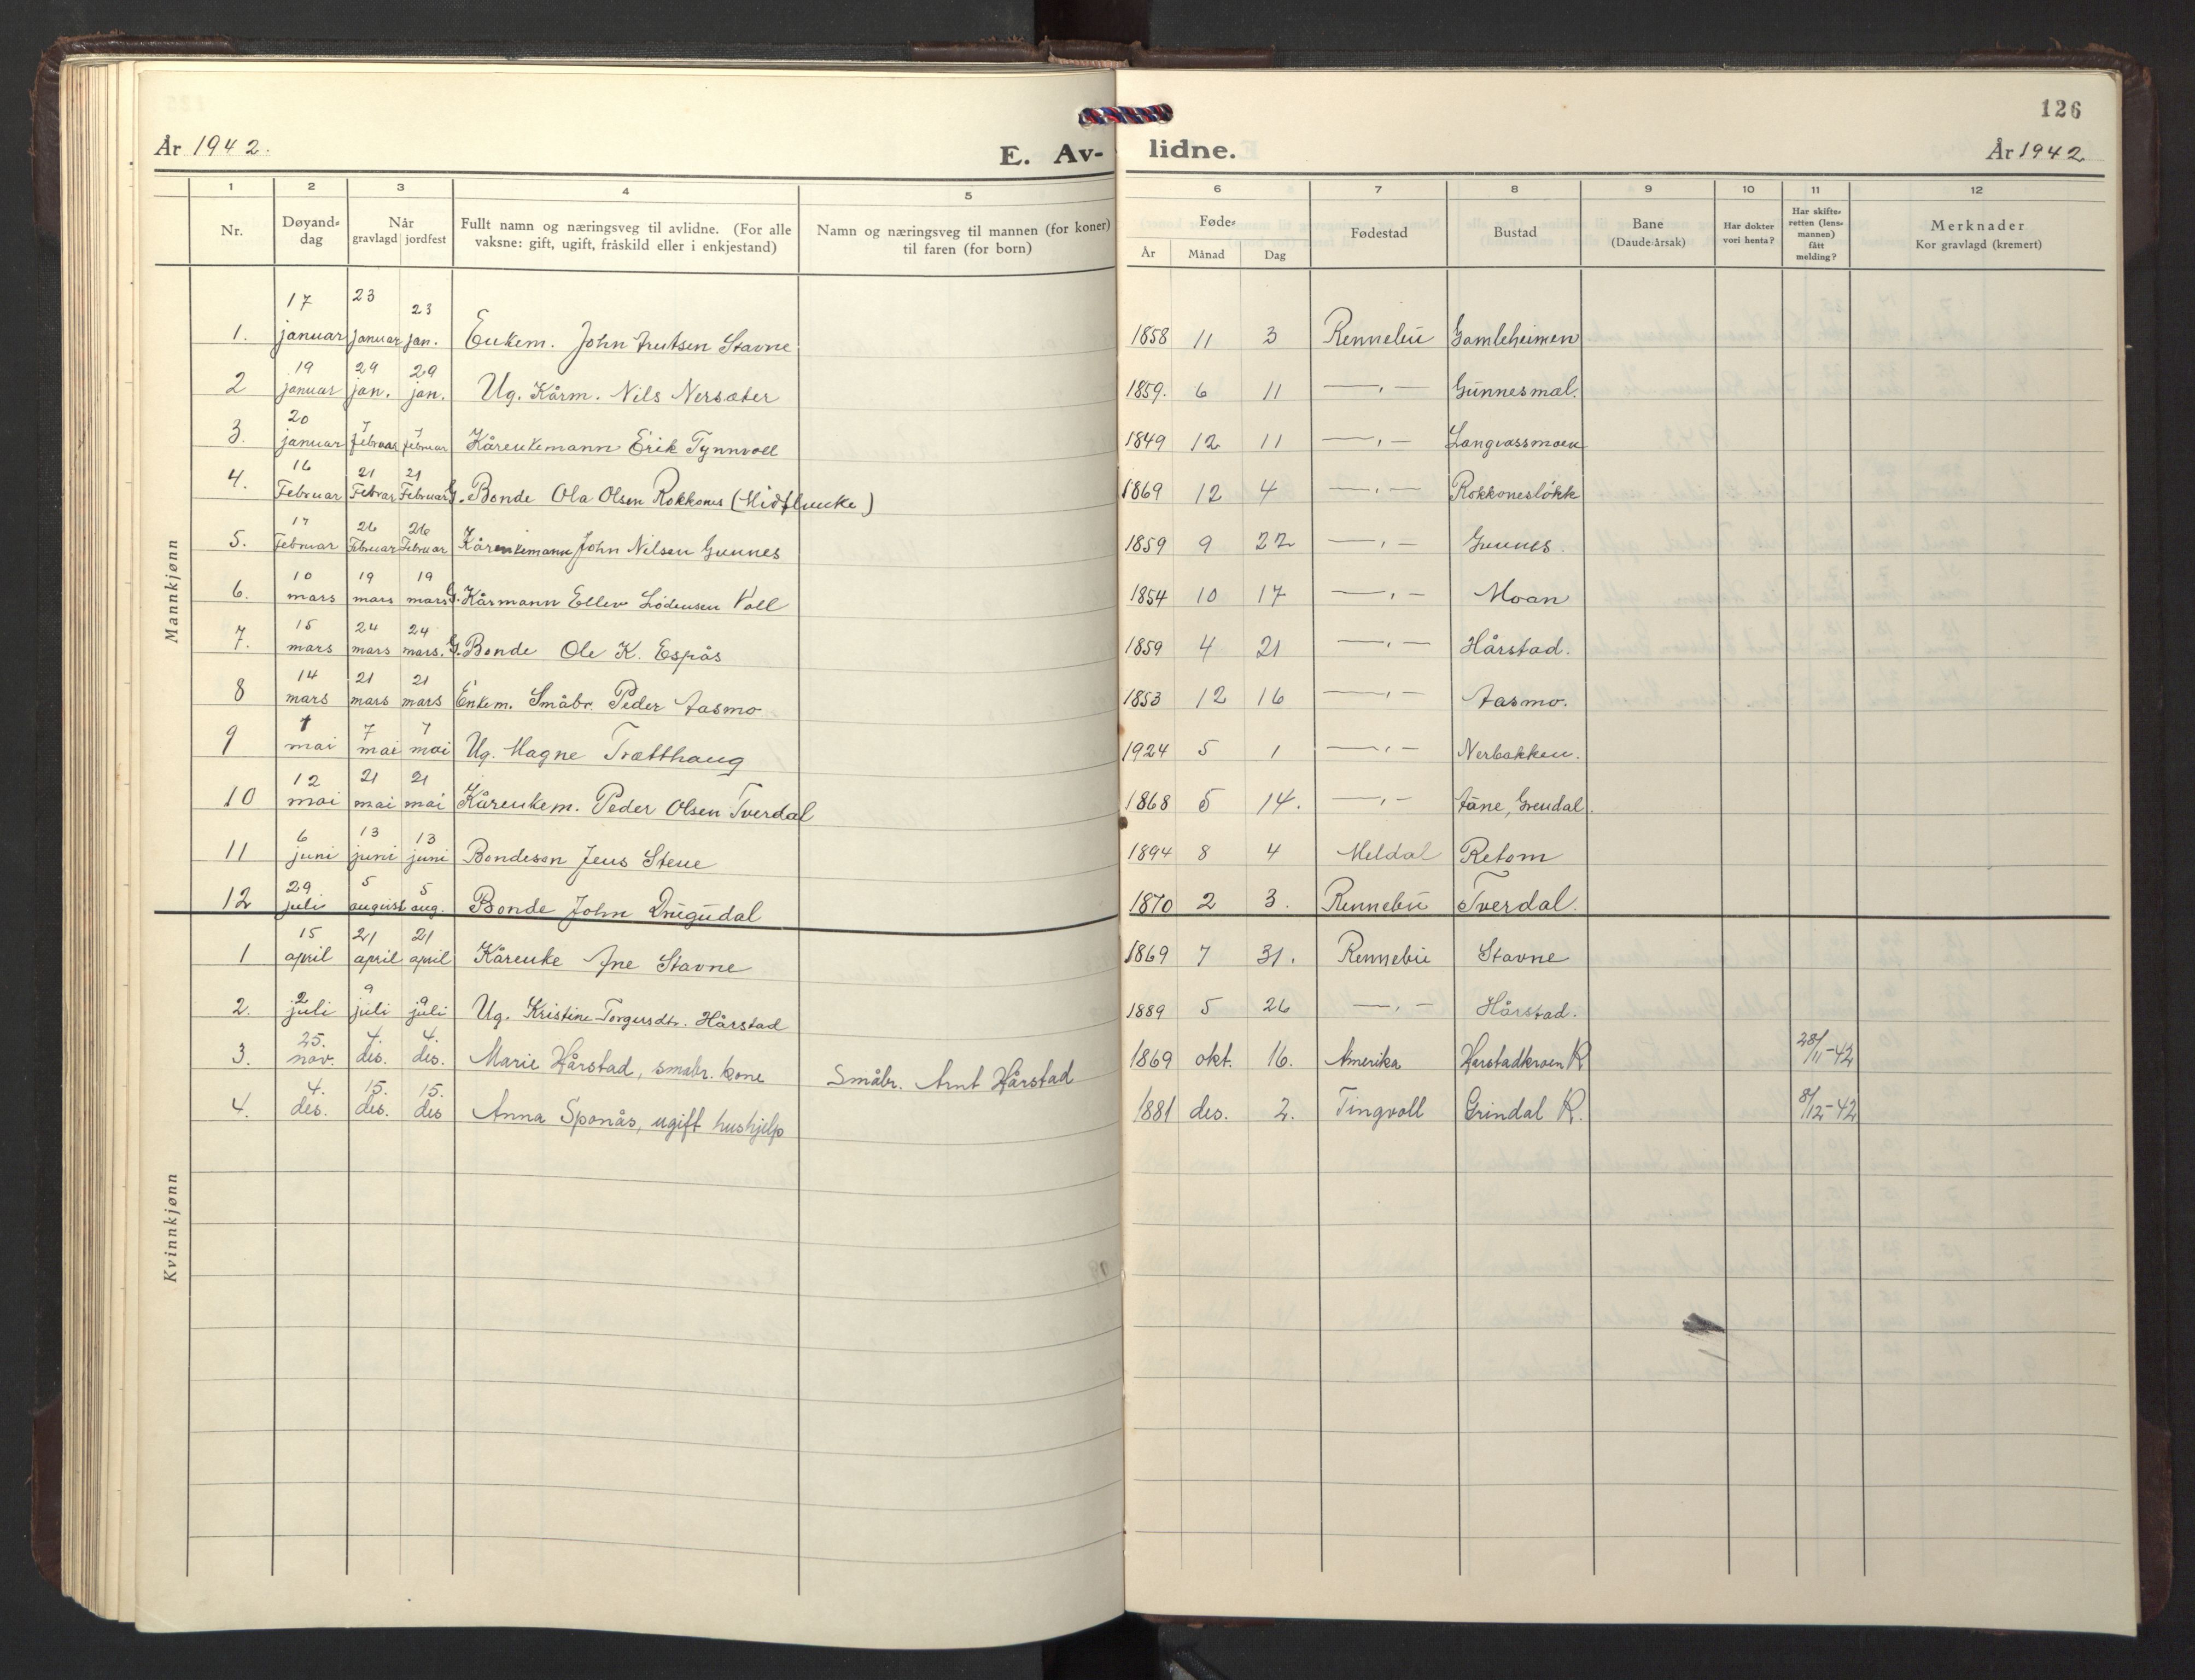 126
År 1942.
E. Av-
lidne.
År 1942
1 2 3 4 5 6 7 8 9 10 11 12
Nr. Døyand-dag Når gravlagd jordfest Fullt namn og næringsveg til avlidne. (For alle vaksne: gift, ugift, fråskild eller i enkjestand) Namn og næringsveg til mannen (for koner) til faren (for born) Føde- År Månad Dag Fødestad Bustad Bane (Daude-årsak) Har dokter vori henta? Har skifte-retten (lens-mannen) fått melding? Merknader Kor gravlagd (kremert)
Mannkjønn
1. 17 januar 23 januar 23 jan. Enkem. John Stavne 1858 11 3 Rennebu Gamleheimen
2 19 januar 29 jan. 29 jan. Ug. Kårm. Nils Nersæter 1859. 6 11 —,— Gunnesmal.
3. 20 januar 7 februar 7 februar Kårenkemann Erik Tynnvoll 1849 12 11 —,— Langvassmoen
4. 16 Februar 21 Febrar 21 Februar G. Bonde Ola Olsen Rokkones (Midtbrekke) 1869 12 4 —,— Rokkonesløkk
5. 17 Februar 26 Februar 26 Februar Kårenkemann John Nilsen Gunnes 1859 9 22 —,— Gunnes.
6. 10 mars 19 mars 19 mars G. Kårmann Ellev Lodensen Voll 1854 10 17 —,— Moan
7. 15 mars 24 mars 24 mars. G. Bonde Ole K. Espås 1859 4 21 —,— Hårstad.
8 14 mars 21 mars 21 mars Enkem. Småbr. Peder Aasmo 1853 12 16 —,— Aasmo.
9 1 mai 7 mai 7 mai Ug. Magne Trætthaug 1924 5 1 —,— Nerbakken.
10 12 mai 21 mai 21 mai Kårenkem. Peder Olsen Tverdal 1868 5 14. —,— Åne, Grendal.
11 6 juni 13 juni 13 juni Bondesøn Jens Stene 1894 8 4 Meldal Reton
12 29 juli 5 august 5 aug. Bonde John Drugudal 1870 2 3. Rennebu Tverdal.
Kvinnkjønn
1 15 april 21 april 21 april Kårenke Ane Stavne 1869 7 31. Rennebu Stavne
2. 2 juli 9 juli 9 juli Ug. Kristine Torgersdtr. Hårstad 1889 5 26 —,— Hårstad.
3. 25. nov. 4. des. 4. des. Marie Hårstad, småbr. kone Småbr. Arnt Hårstad 1869 okt. 16. Amerika Harstadkroen R 28/11-42
4. 4. des. 15. des. 15. des Anna Sponås, ugift hushjelp 1881 des. 2. Tingvoll Grindal R. 8/12-42